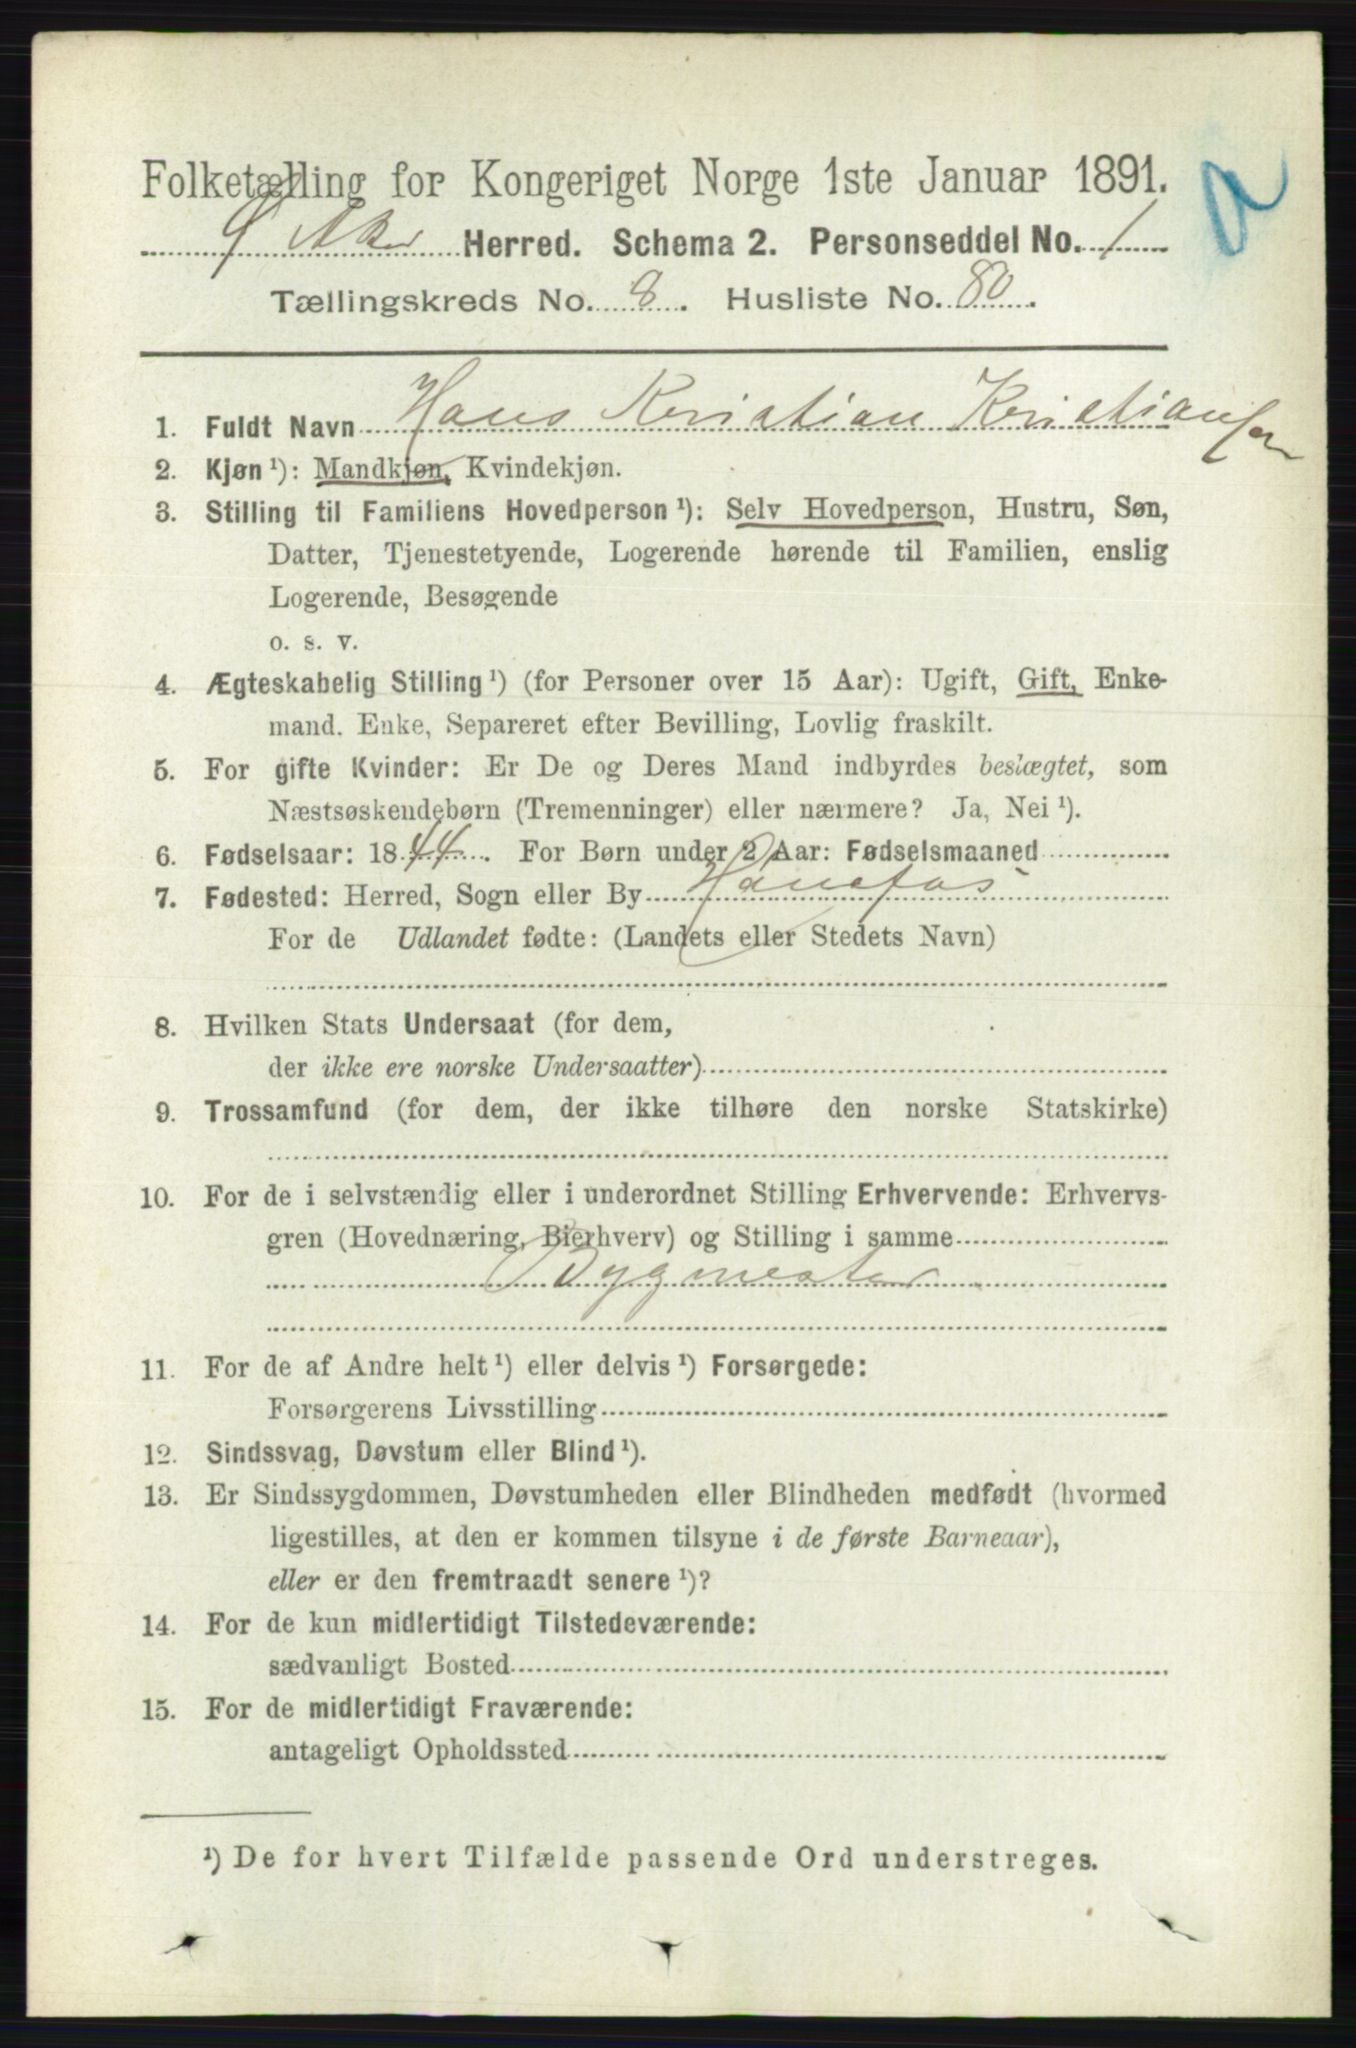 Folketælling for Kongeriget Norge 1ste Januar 1891.
Aker Herred. Schema 2. Personseddel No. 1
Tællingskreds No. 8. Husliste No. 80.
1. Fuldt Navn Hans Kristian Kristiansen
2. Kjøn ¹): Mandkjøn, Kvindekjøn.
3. Stilling til Familiens Hovedperson ¹): Selv Hovedperson, Hustru, Søn,
Datter, Tjenestetyende, Logerende hørende til Familien, enslig
Logerende, Besøgende
o. s. v.
4. Ægteskabelig Stilling ¹) (for Personer over 15 Aar): Ugift, Gift, Enke-
mand. Enke, Separeret efter Bevilling, Lovlig fraskilt.
5. For gifte Kvinder: Er De og Deres Mand indbyrdes beslægtet, som
Næstsøskendebørn (Tremenninger) eller nærmere? Ja, Nei ¹).
6. Fødselsaar: 1844. For Børn under 2 Aar: Fødselsmaaned
7. Fødested: Herred, Sogn eller By Hønefos
For de Udlandet fødte: (Landets eller Stedets Navn)
8. Hvilken Stats Undersaat (for dem,
der ikke ere norske Undersaatter)
9. Trossamfund (for dem, der ikke tilhøre den norske Statskirke)
10. For de i selvstændig eller i underordnet Stilling Erhvervende: Erhvervs-
gren (Hovednæring, Bierhverv) og Stilling i samme
Bygmester
11. For de af Andre helt ¹) eller delvis ¹) Forsørgede:
Forsørgerens Livsstilling
12. Sindssvag, Døvstum eller Blind ¹).
13. Er Sindssygdommen, Døvstumheden eller Blindheden medfødt (hvormed
ligestilles, at den er kommen tilsyne i de første Barneaar),
eller er den fremtraadt senere ¹)?
14. For de kun midlertidigt Tilstedeværende:
sædvanligt Bosted
15. For de midlertidigt Fraværende:
antageligt Opholdssted
¹) De for hvert Tilfælde passende Ord understreges.